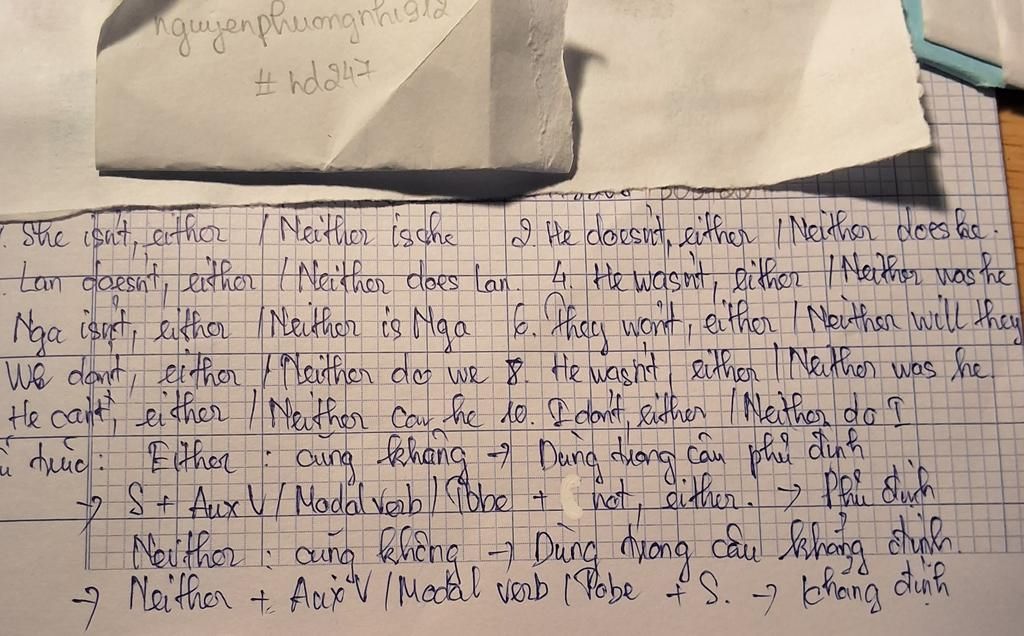 nguyenphuongnhi912
# hd247
. She isn't, either / Neither is she 2. He doesn't, either / Neither does he.
. Lan doesn't, either / Neither does Lan. 4. He wasn't, either / Neither was he
Nga isn't, either / Neither is Nga 6. They won't, either / Neither will they
We don't, either / Neither do we 8. He wasn't, either / Neither was he
He can't, either / Neither can he 10. I don't, either / Neither do I
trúc: Either : cũng không → Dùng trong câu phủ định
→ S + Aux V / Modal verb / Tobe + not, either. → Phủ định
Neither : cũng không → Dùng trong câu khẳng định.
→ Neither + Aux V / Modal verb / Tobe + S. → khẳng định